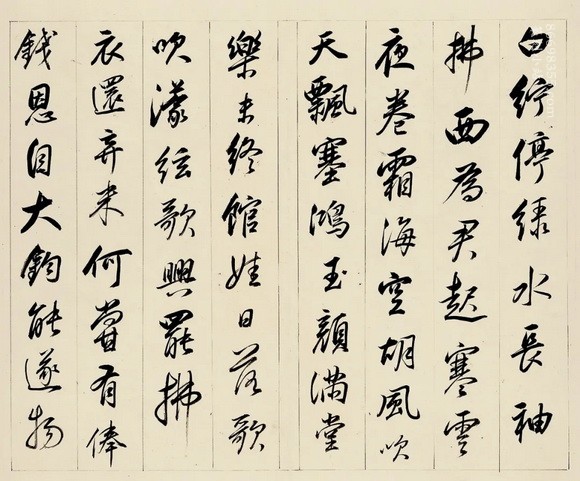 白紵停綠水長袖
拂面為君起寒雲
夜卷霜海空胡風吹
天飄塞鴻玉顏滿堂
樂未終館娃日落歌
吹濛絃歌興罷拂
衣還弃来何嘗有俸
錢恩自大鈞能遂物